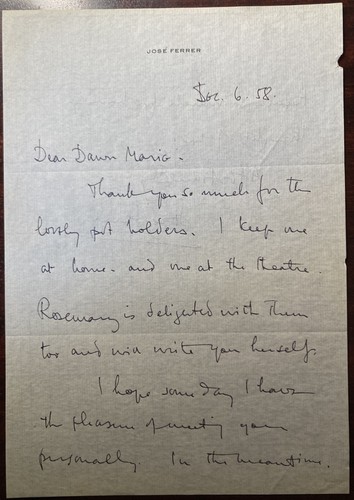 JOSÉ FERRER
Dec. 6. 58.
Dear Dawn Marie -
Thank you so much for the
lovely pot holders. I keep one
at home - and one at the theatre.
Rosemary is delighted with them
too and will write you herself.
I hope some day I have
the pleasure of meeting you
personally. In the meantime,